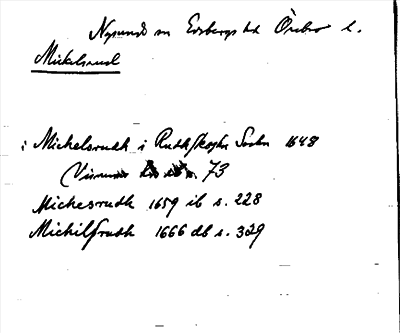 Nysund sn Edsbergs hd Örebro l.
Mickelsrud
: Michelsrudh i Rudhskoghz Sochn 1648
73
Michesrudh 1659 ib s. 228
Michilsrudh 1666 db s. 329